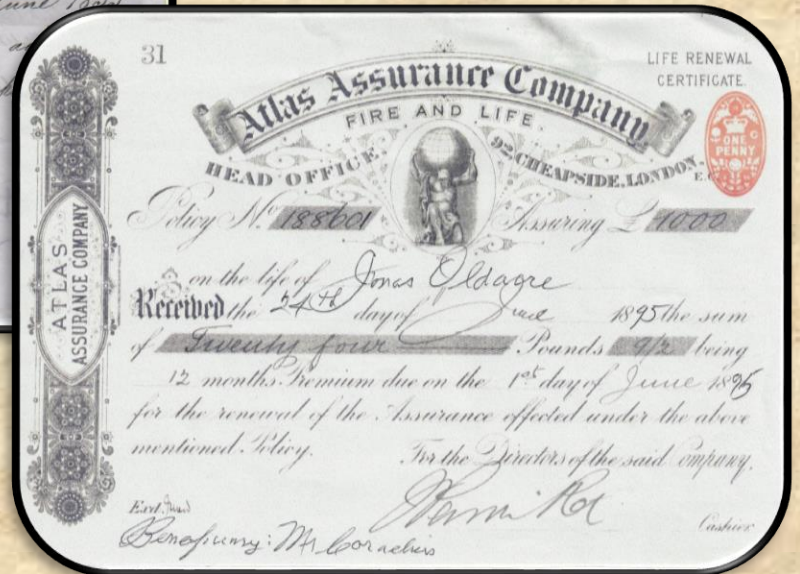 31
LIFE RENEWAL
CERTIFICATE.
Atlas Assurance Company
FIRE AND LIFE.
HEAD OFFICE, 92, CHEAPSIDE, LONDON, E.C
ONE
PENNY
Policy No. 188601 Assuring £ 1000
on the life of Jonas Oldacre
Received the 24th day of June 1895 the sum
of Twenty four Pounds 9/2 being
12 months Premium due on the 1st day of June 1895
for the renewal of the Assurance effected under the above
mentioned Policy.
For the Directors of the said Company.
Exd.
Cashier
Beneficiary: Mr Cornelius
ATLAS
ASSURANCE COMPANY